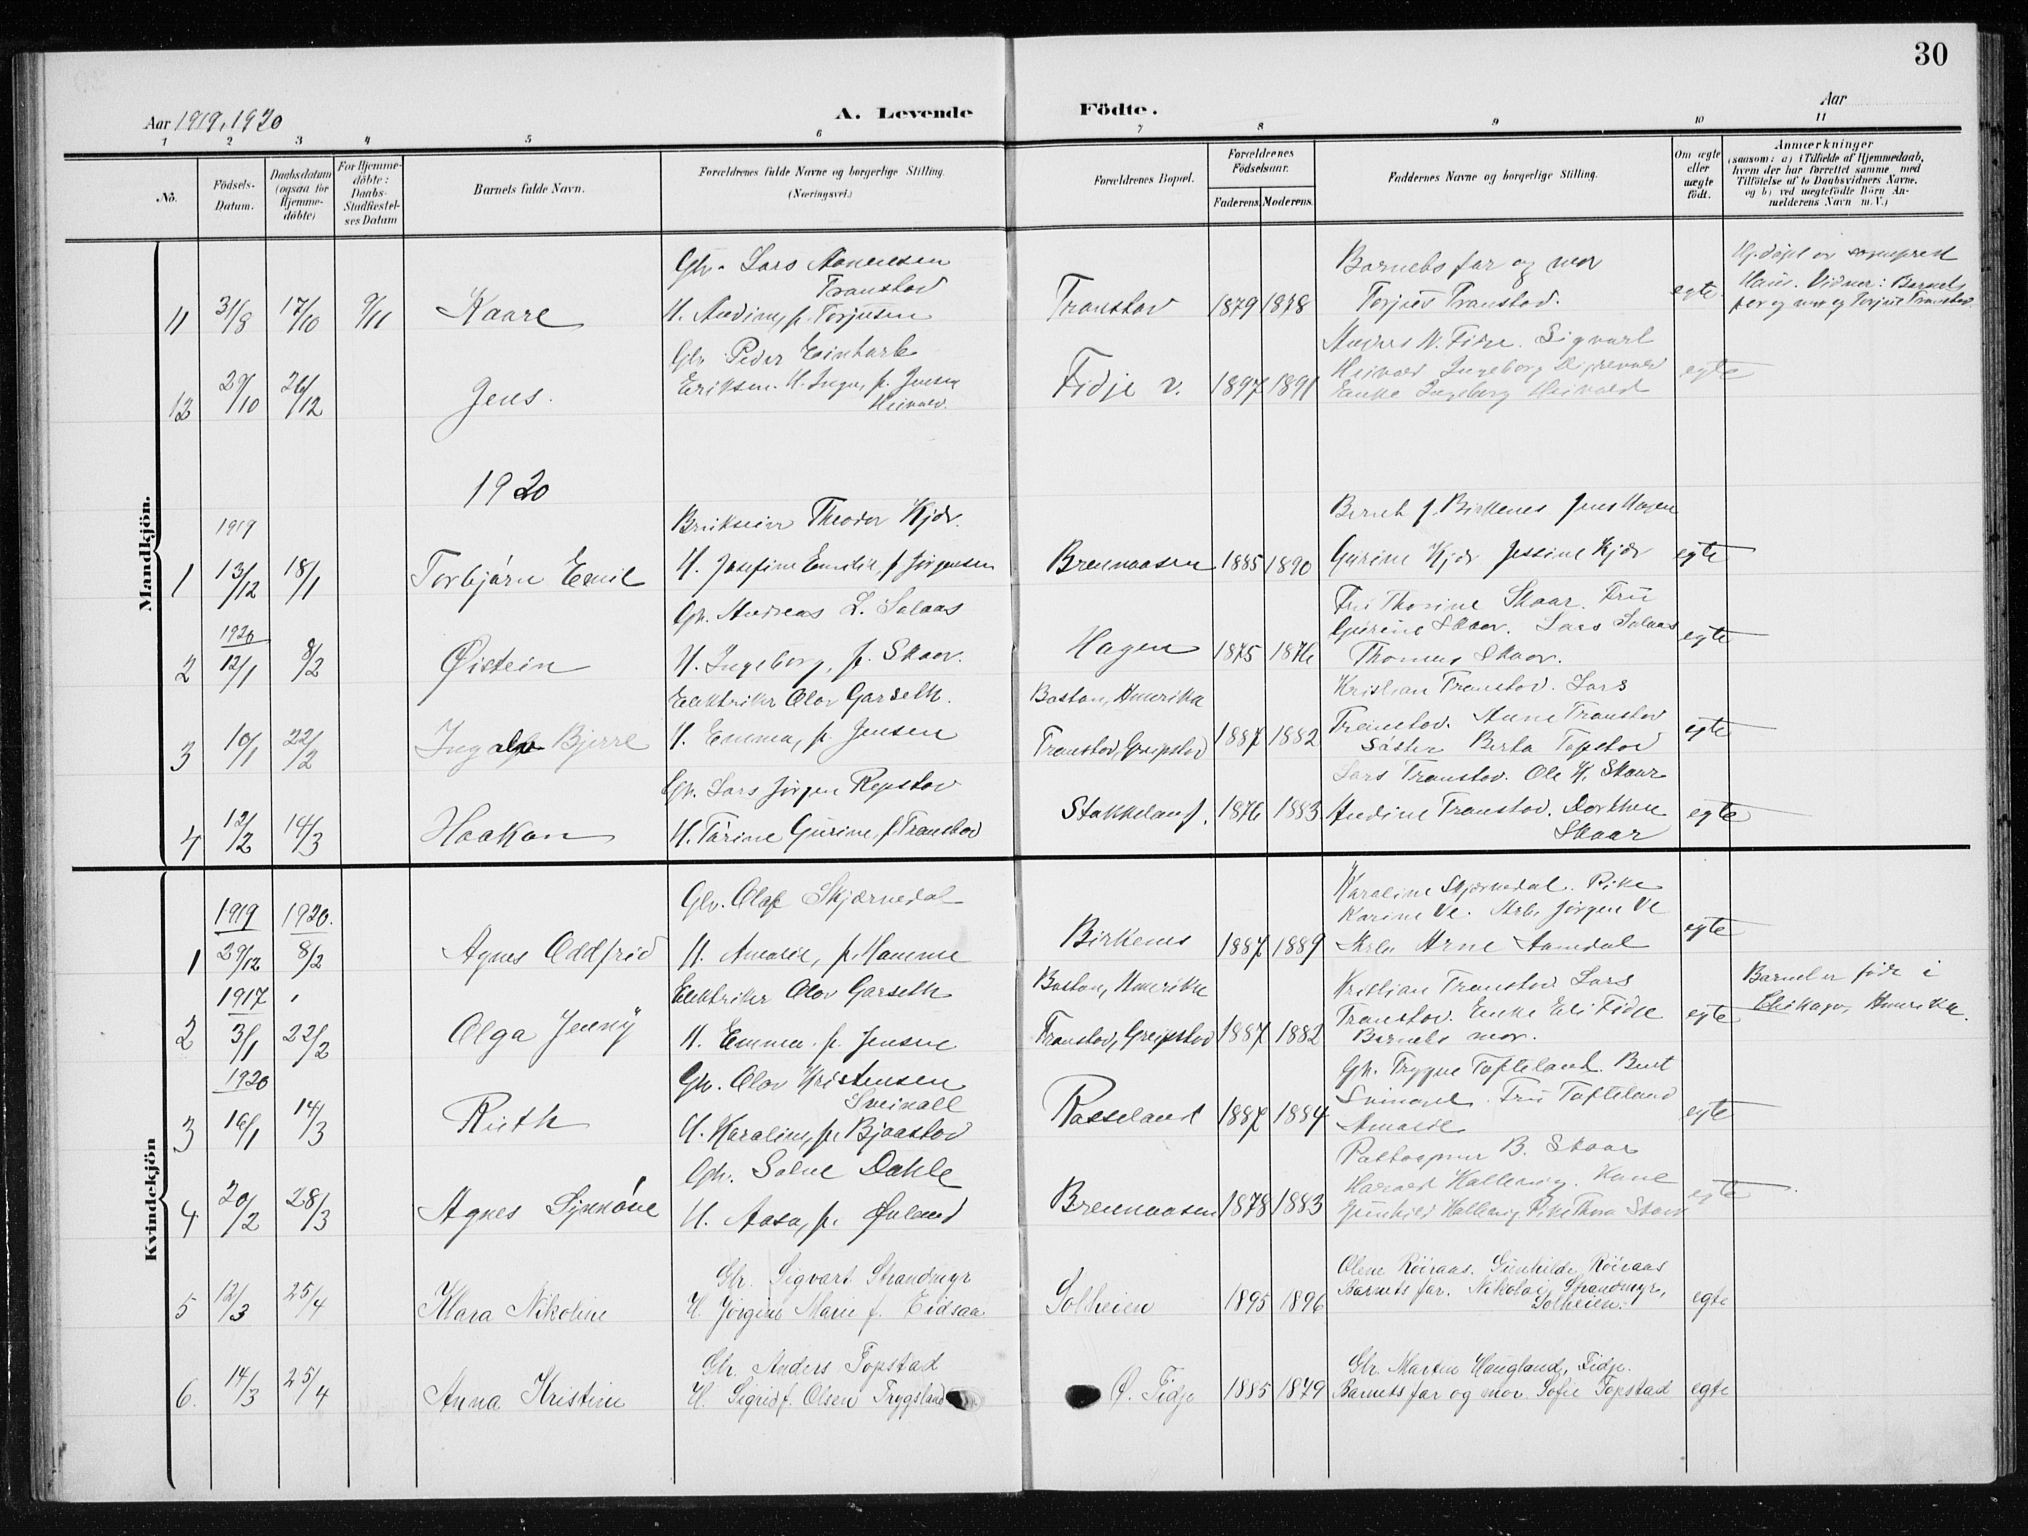 30
Aar 1919, 1920
A. Levende
Födte.
Aar
1 2 3 4 5 6 7 8 9 10 11
No.
Födsels-
Datum.
Daabsdatum
(ogsaa for
Hjemme-
döbte)
For Hjemme-
döbte:
Daabs-
Stadfæstel-
ses Datum
Barnets fulde Navn.
Forældrenes fulde Navne og borgerlige Stilling.
(Næringsvei.)
Forældrenes Bopæl.
Forældrenes
Födselsaar.
Faderens. Moderens.
Faddernes Navne og borgerlige Stilling.
Om ægte
eller
uægte
födt.
Anmærkninger
(saasom: a) i Tilfælde af Hjemmedaab,
hvem der har forrettet samme med
Tilföielse af to Daabsvidners Navne,
og b) ved uegtefödte Börn An-
melderens Navn m. V.)
Mandkjön.
11 31/8 17/10 9/11 Kaare
Gbr. Lars Aanensen
Transtøv
H. Andine, f. Torjusen
Transtøv 1879 1878
Barnets far og mor
Torjus Transtøv.
egte
Hj.døpt av sogneprest
Vidner: Barnets
far og mor og Torjus Transtøv
12 29/10 26/12 Jens.
Gbr. Peder
Eriksen. H. Inga, f. Jensen
Heivold.
Fidje v. 1897 1891
Anders N. Fidje. Sigvart
Heivold Ingeborg
Enke Ingeborg Heivold
egte
1920
1 1919 13/12 18/1 Torbjørn Emil
Theodor Kjær.
H. Josefine Emilie, f. Jørgensen
Brennaasen 1885 1890
Bernt J. Birkenes Jens Hagen
Gurine Kjær Jessine Kjær
egte
2 1920 12/1 8/2 Øistein
Gbr. Andreas L. Salaas
H. Ingeborg, f. Skaar.
Hagen 1875 1876
Fru Thorine Skaar. Fru
Gurine Skaar. Lars Salaas
Thomas Skaar.
egte
3 10/1 22/2 Ingolf Bjerre
Elektriker Olav Garseth.
H. Emma, f. Jensen
Boston, Amerika
Transtøv, Greipstød 1887 1882
Kristian Transtøv. Lars
Transtøv. Anne Transtøv
Søster Berta Topstød
egte
4 12/2 14/3 Haakon
Gbr. Lars Jørgen Repstøv
H. Tarine Gurine, f. Transtøv
Stokkeland. 1876 1883
Lars Transtøv. Ole K. Skaar
Andine Transtøv. Dorthea
Skaar
egte
Kvindekjön
1 1919 29/12 1920. 8/2 Agnes Oddfrid
Gbr. Olaf Skjærnedal
H. Amalie, f. Hamme
Birkenes 1887 1889
Karoline Skjærnedal. Pike
Karine Ve. Arb. Jørgen Ve
Arb. Arne Aamdal
egte
2 1917 3/1 22/2 Olga Jenny
Elektriker Olav Garseth
H. Emma f. Jensen
Boston, Amerika
Transtøv, Greipstød 1887 1882
Kristian Transtøv Lars
Transtøv. Enke Eli Fidje
Barnets mor.
egte
Barnet er født i
Chikago, Amerika.
3 1920 16/1 14/3 Ruth
Gbr. Olav Kristensen
Sveinall
H. Karoline, f. Bjaastøv
Rosseland 1887 1884
Gbr. Trygve Tofteland. Bernt
Fru Tofteland
Amalie
egte
4 20/2 28/3 Agnes Synnøve
Gbr. Salve Dahle
H. Aasa, f. Øvland
Brennaasen 1878 1883
B. Skaar
Harald Kallevig. Kone
Gunhild Kallevig Pike Thora Skaar
egte
5 12/3 25/4 Klara Nikoline
Gbr. Sigvart Strandmyr
H. Jørgine Marie f. Eidsaa
Solheien 1895 1896
Olene Røiraas. Gunhilde Røiraas
Barnets far. Nikolai Strandmyr,
Solheien.
egte
6 14/3 25/4 Anna Kristine
Gbr. Anders Topstad
H. Sigrid f. Olsen Trygsland
Ø. Fidje 1885 1879
Gbr. Martin Haugland, Fidje.
Barnets far og mor. Sofie Topstad
egte